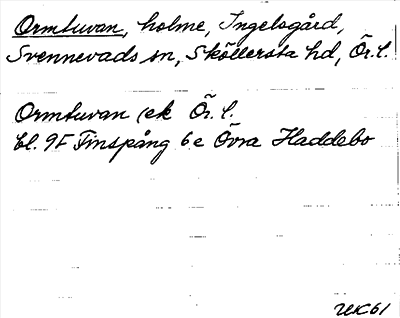 Ormtuvan, holme, Ingelsgård,
Svennevads sn, Sköllersta hd, Ör. l.
Ormtuvan (ek Ör. l.
bl. 9F Finspång 6e Övra Haddebo
UK61